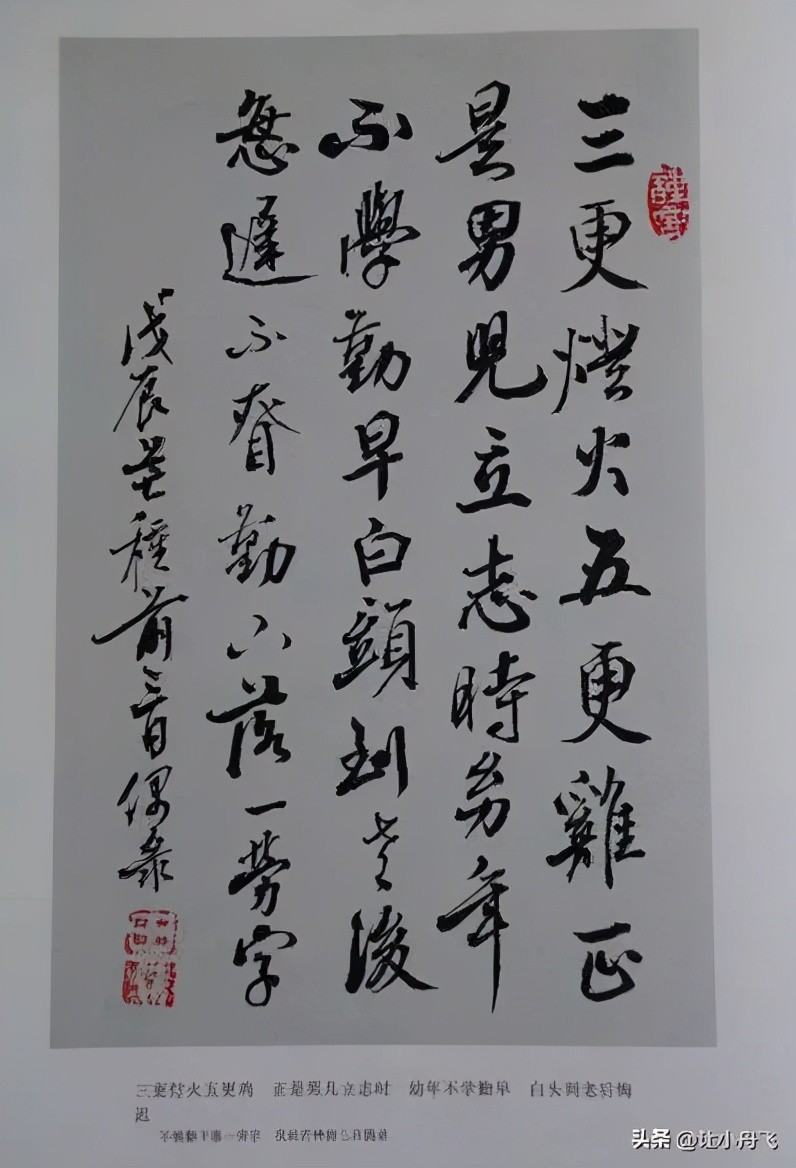 三更燈火五更雞正
是男兒立志時幼年
不學勤早白頭到老後
悔遲不勤落一勞字
戊辰芒種前三日偶录
三更灯火五更鸡 正是男儿立志时 幼年不学勤早 白头到老后悔
迟
头条 @让小丹飞